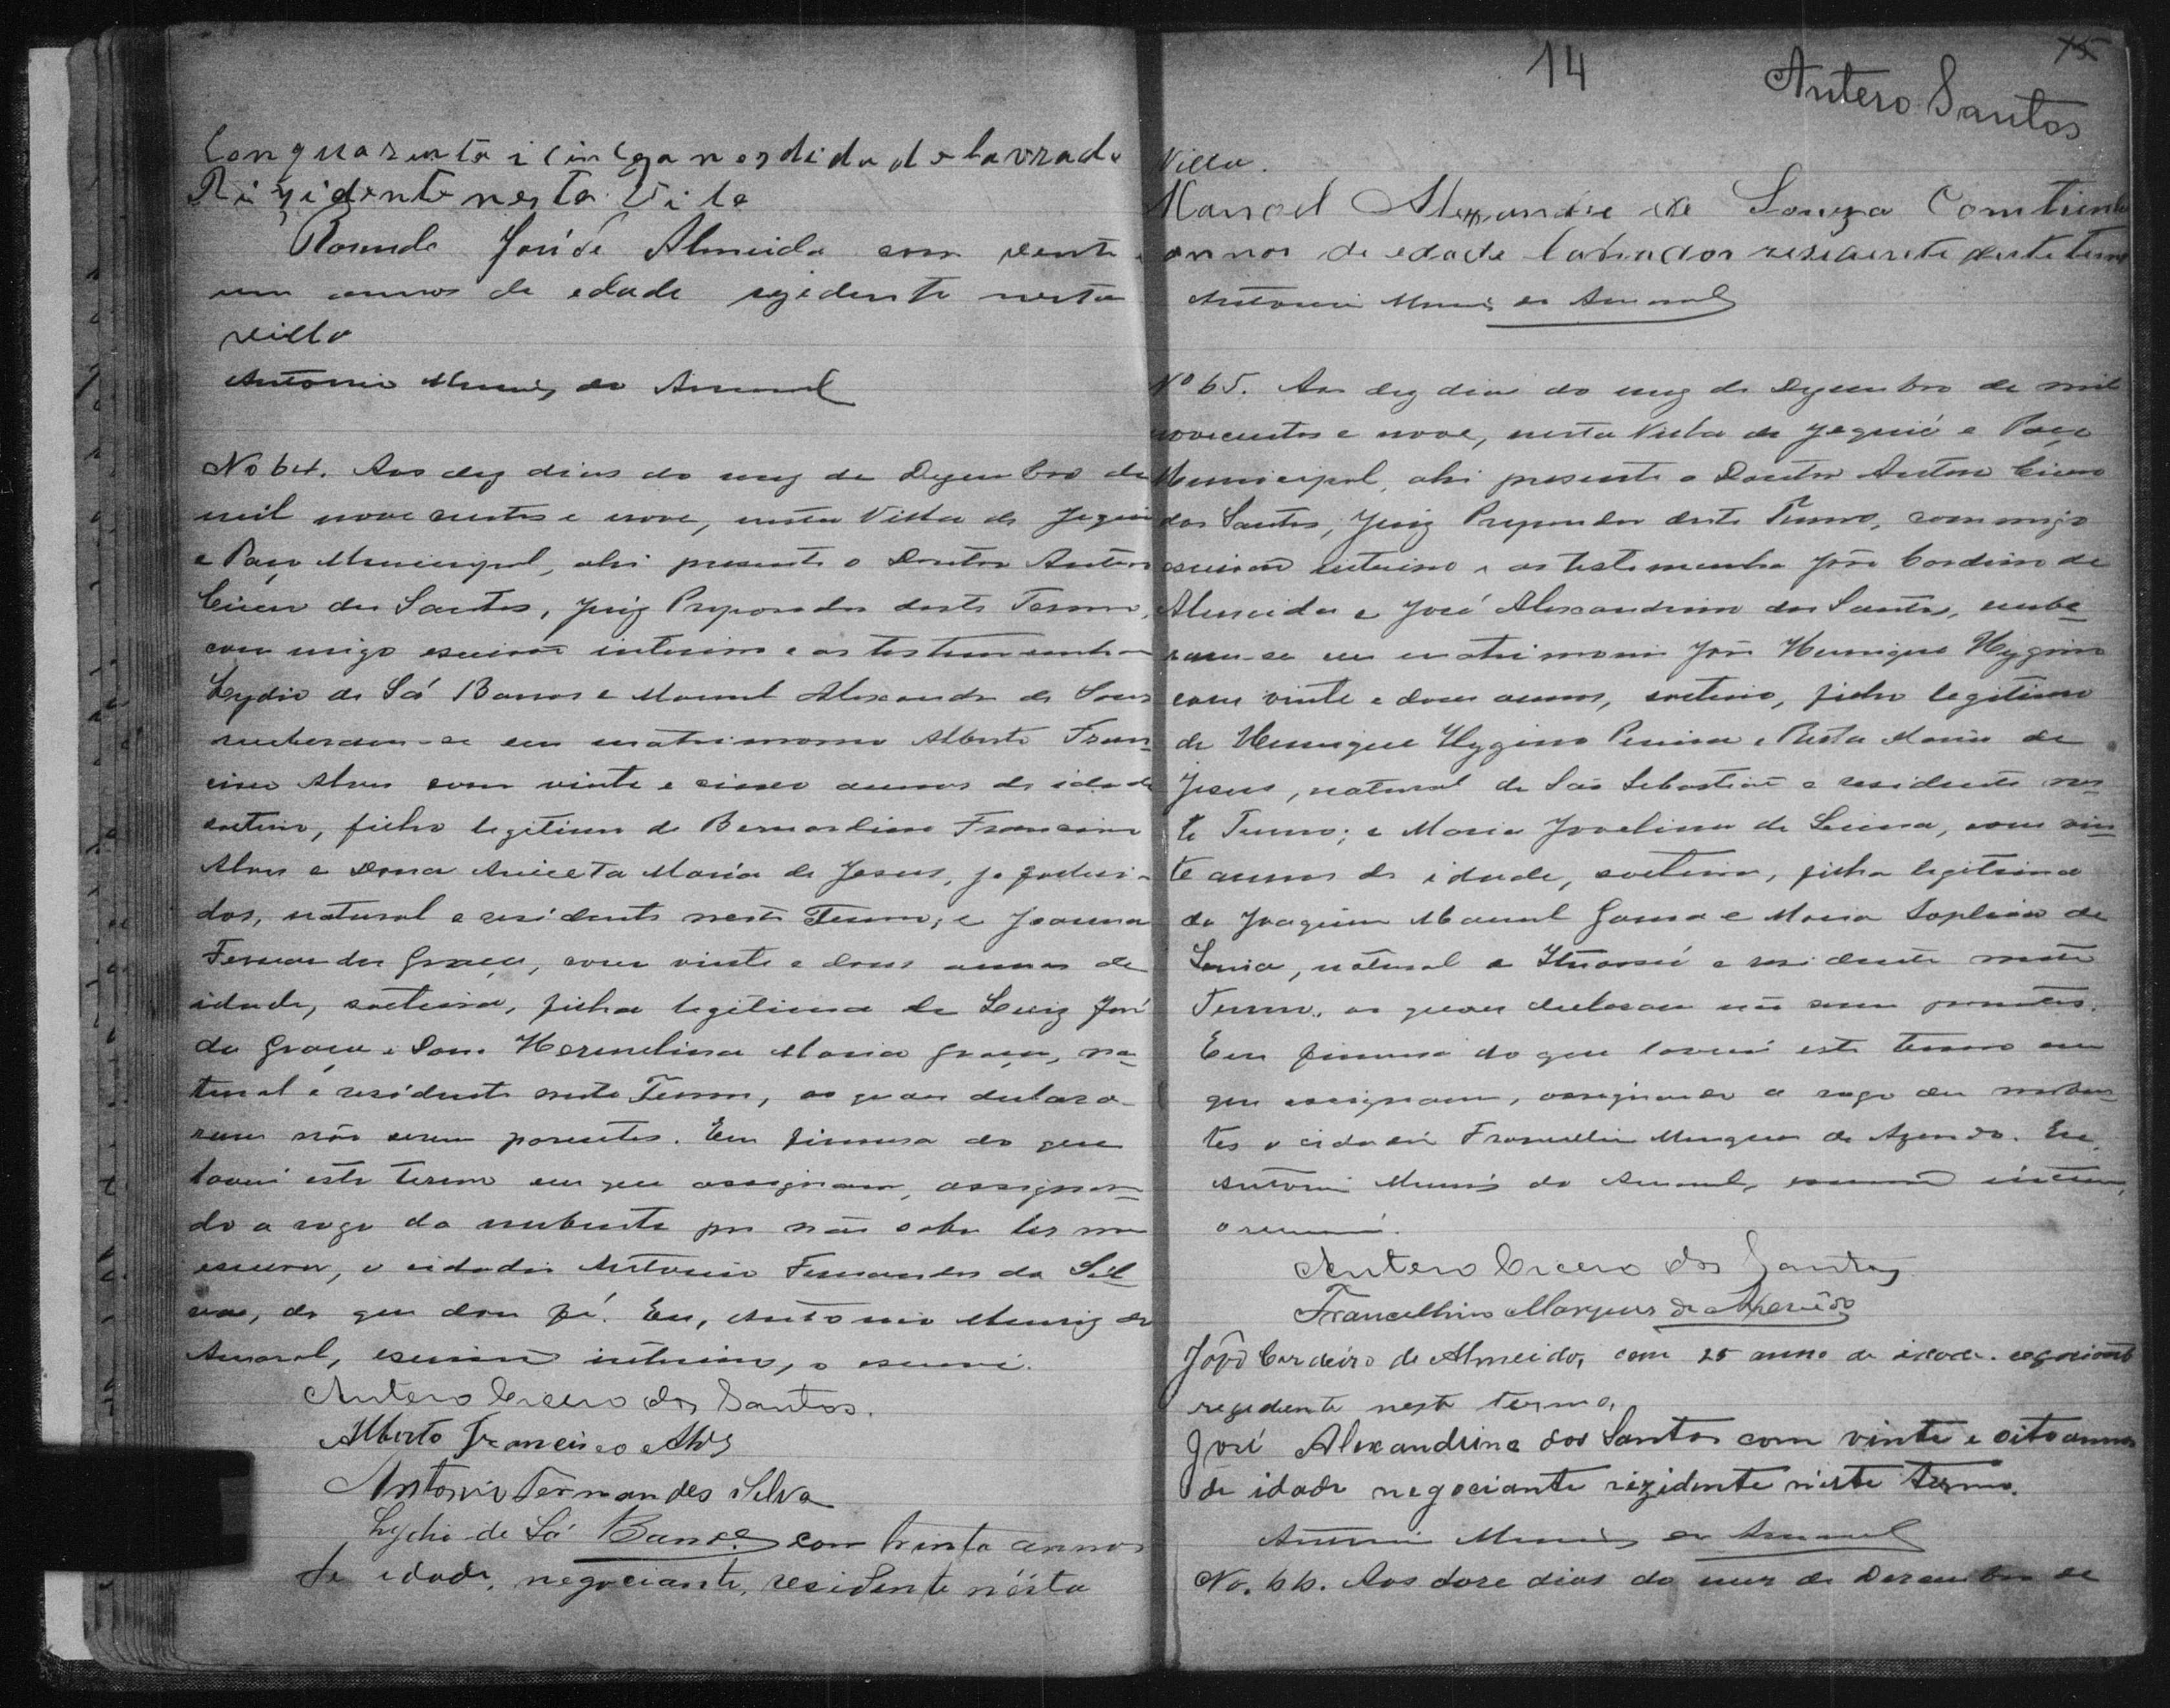 Con quarenta i cinco annos di da de lavrado
Rizidente nesta Vila
Rosendo José de Almeida com vente
um annos de edade rezidente nesta
villa
Antonio Muniz do Amaral
No 64. Aos dez dias do mez de Dezembro de
mil nove centos e nove, nesta Villa de Jequié
e Paço Municipal, ahi presente o Doutor Antero
Cicero dos Santos, Juiz Preparador deste Termo,
com migo escrivão interino e as testemunhas
Lydio de Sá Barros e Manoel Alexandre de Souza
receberam-se em matrimonio Alberto Fran-
cisco Alves com vinte e cinco annos de idade
solteiro, filho legitimo de Bernardino Francisco
Alves e Dona Aniceta Maria de Jesus, ja falleci-
dos, natural e residente neste Termo; e Joanna
Fernandes Graça, com vinte e dous annos de
idade, solteira, filha legitima de Luiz José
da Graça e Dona Hermelina Maria Graça, na-
tural e residente neste Termo, os quaes declara-
ram não serem parentes. Em firmeza do que
lavrei este termo em que assignam, assignan-
do a rogo da nubente por não saber ler nem
escrever, o cidadão Antonio Fernandes da Sil-
va, do que dou fé. Eu, Antonio Muniz do
Amaral, escrivão interino, o escrevi.
Antero Cicero dos Santos.
Alberto Francisco Alves
Antonio Fernandes Silva
Lydio de Sá Barros com trinta annos
de edade, negociante, residente nésta
14
15
Antero Santos
Villa.
Manoel Alexxandre de Souza Com trinta
annos de edade labrador residente deste termo
Antonio Muniz do Amaral
No 65. Aos dez dias do mez de Dezembro de mil
novecentos e nove, nesta Villa de Jequié e Paço
Municipal, ahi presente o Doutor Antero Cicero
dos Santos, Juiz Preparador deste Termo, commigo
escrivão interino e as testemunhas João Cordeiro de
Almeida e José Alexandrino dos Santos, recebe-
ram-se em matrimonio José Henrique Hygino
com vinte e dous annos, solteiro, filho legitimo
de Henrique Hygino Pereira e Rita Maria de
Jesus, natural de São Sebastião e residente nes-
te Termo; e Maria Jovelina de Lima, com vin-
te annos de idade, solteira, filha legitima
de Joaquim Manoel Gama e Maria Sophia de
natural e Ituassú e residente neste
Termo, os quaes declaram não serem parentes.
Em firmeza do que lavrei este termo em
que assignam, assignando a rogo dos nuben-
tes o cidadão Francellino Marques de Azevedo. Eu,
Antonio Muniz do Amaral, escrivão interino,
o escrevi.
Antero Cicero dos Santos
Francellino Marques de Azevêdo
João Cordeiro de Almeida, com 25 anno de idade. negociante
rezidente neste termo,
José Alexandrino dos Santos com vinte e oito annos
de idade negociante rizidente niste termo.
Antonio Muniz do Amaral
No. 66. Aos dose dias do mes de Desembro de